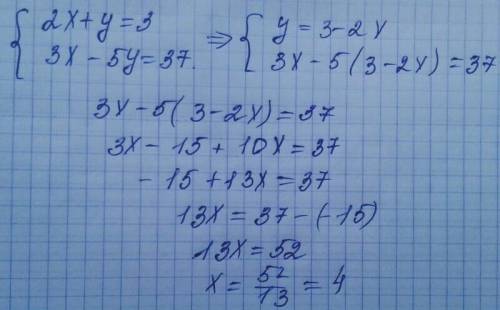 { 2x+y=3 ⇒ { y=3-2x
3x-5y=37. 3x-5(3-2x)=37
3x-5(3-2x)=37
3x-15+10x=37
-15+13x=37
13x=37-(-15)
13x=52
x=52/13=4